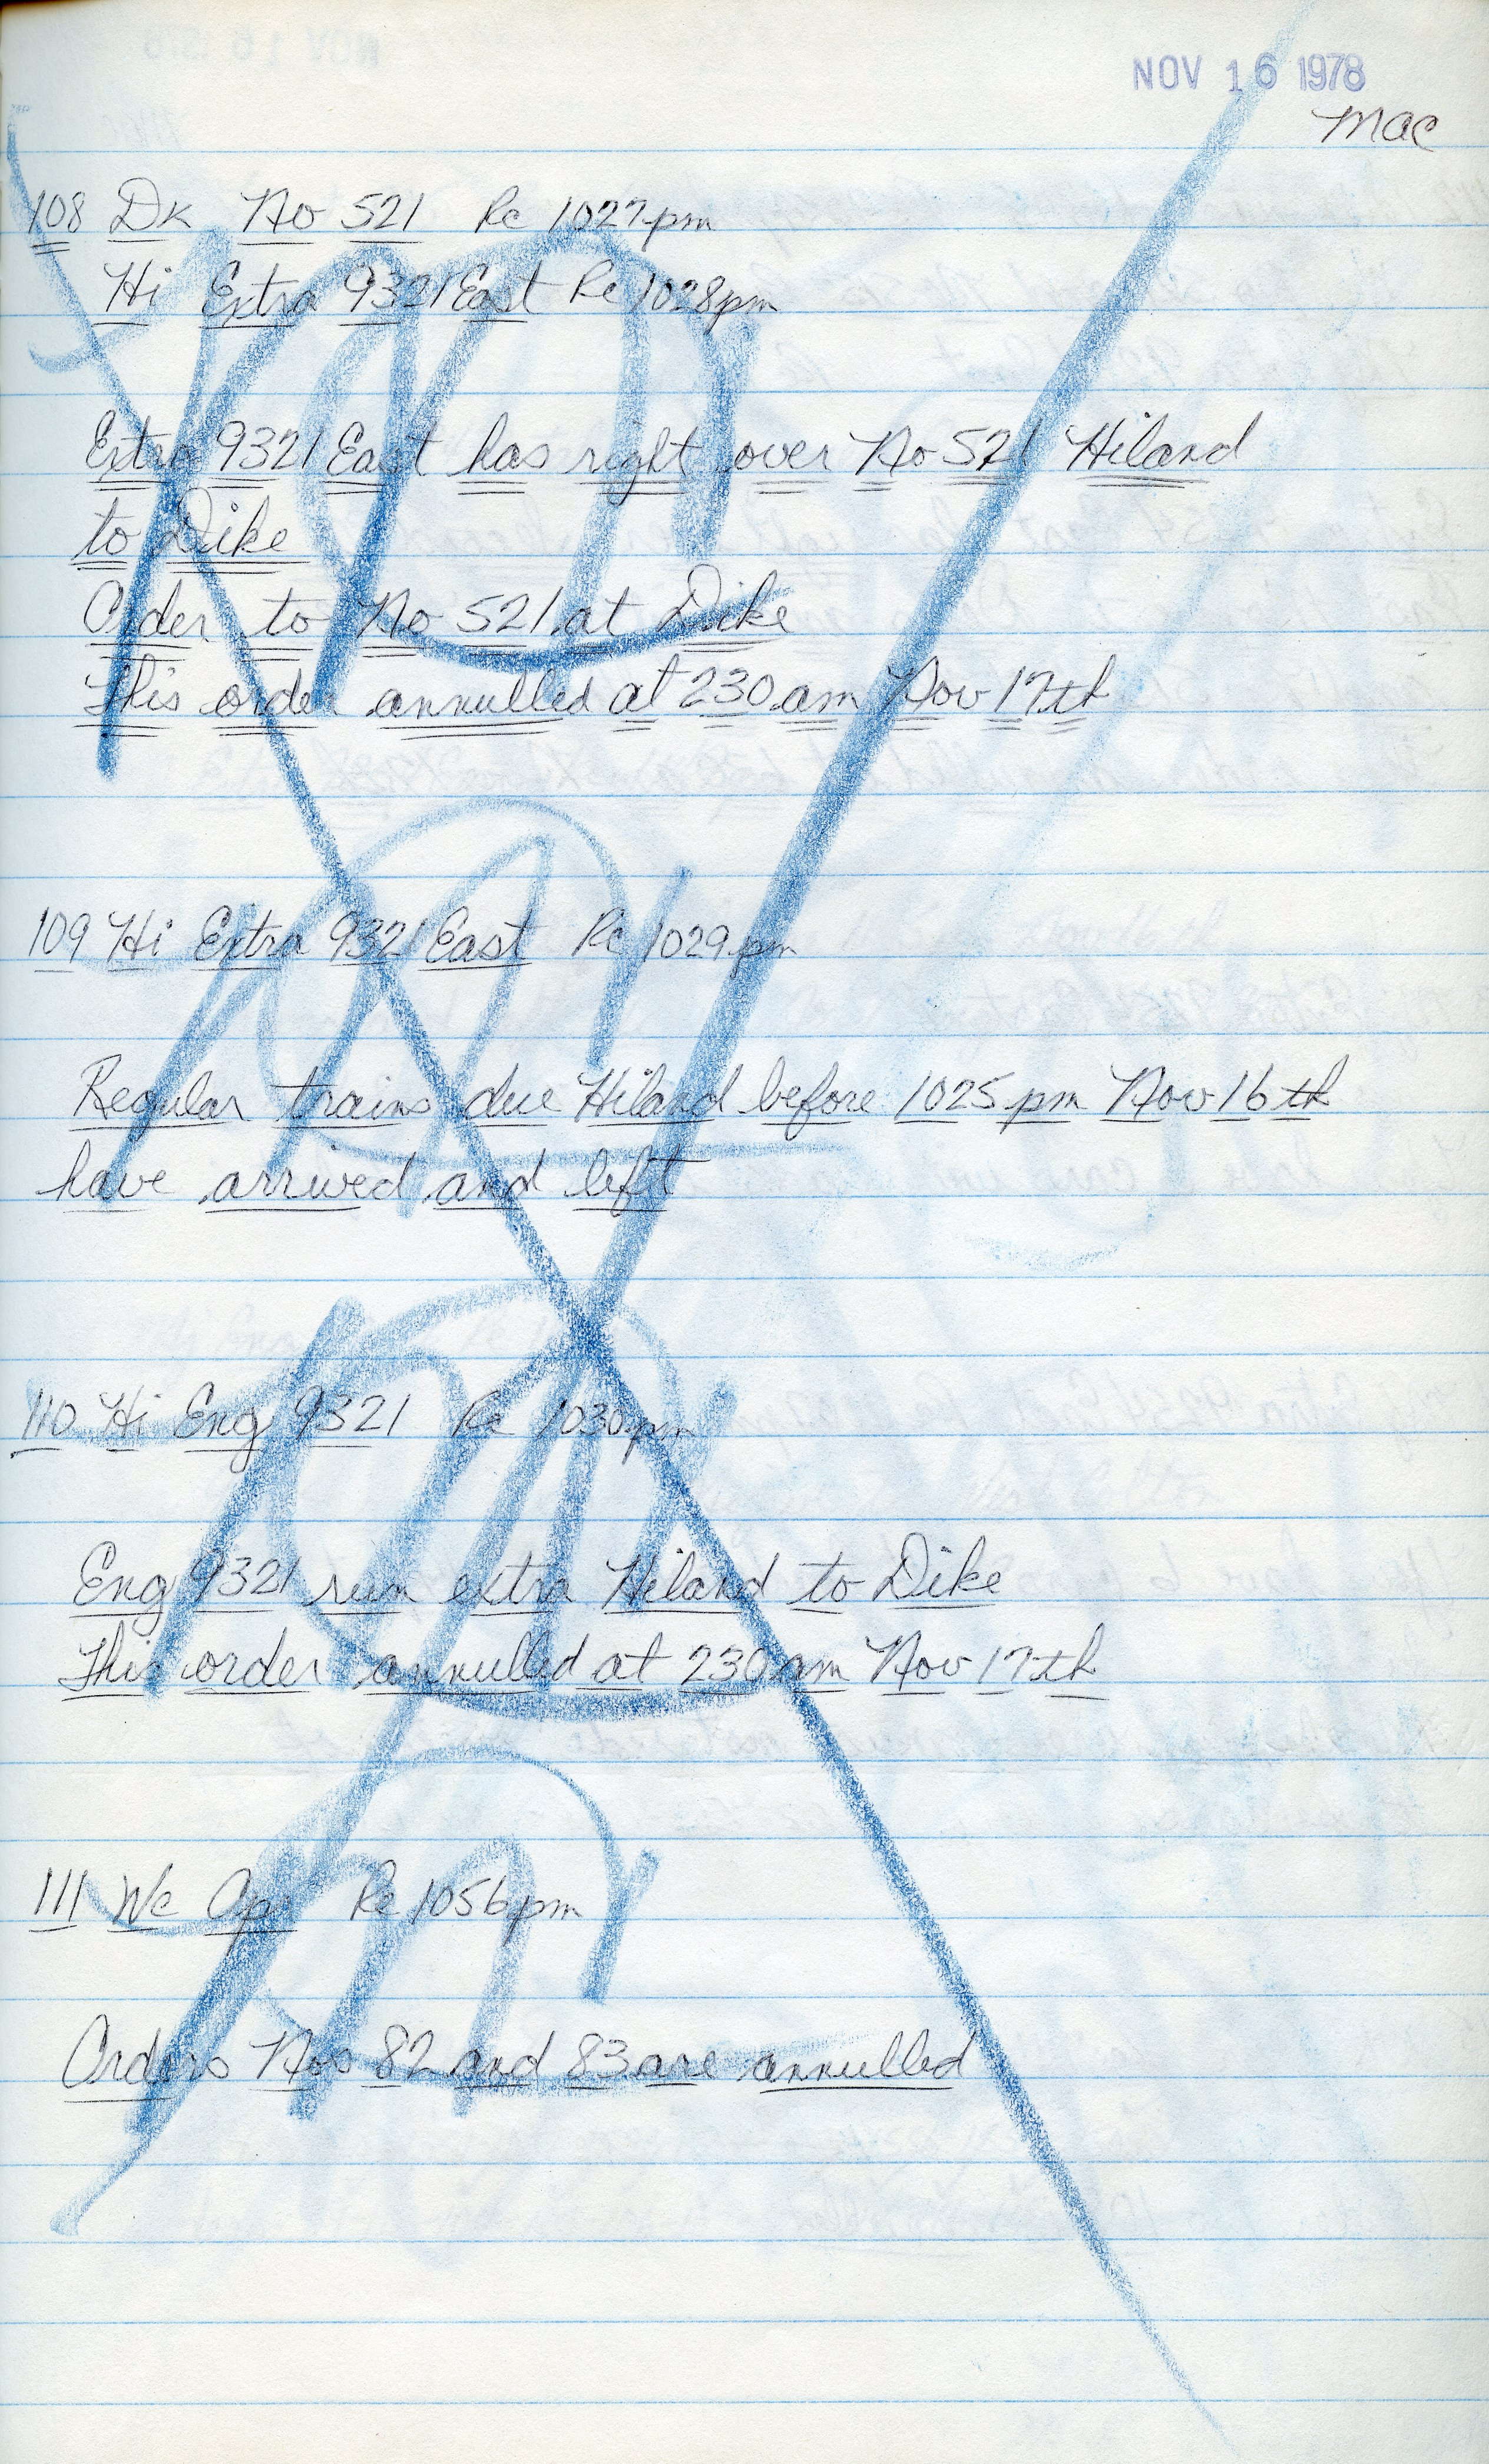 NOV 16 1978
Mac
108 Dk No 521 Rc 1027pm
Hi Extra 9321 East Rc 1028pm
Extra 9321 East has right over No 521 Hiland
to Dike
Order to No 521 at Dike
This order annulled at 230 am Nov 17th
109 Hi Extra 9321 East Rc 1029pm
Regular trains due Hiland before 1025 pm Nov 16th
have arrived and left
110 Hi Eng 9321 Rc 1030pm
Eng 9321 run extra Hiland to Dike
This order annulled at 230 am Nov 17th
111 Wc Opr Rc 1056pm
Orders Nos 82 and 83 are annulled